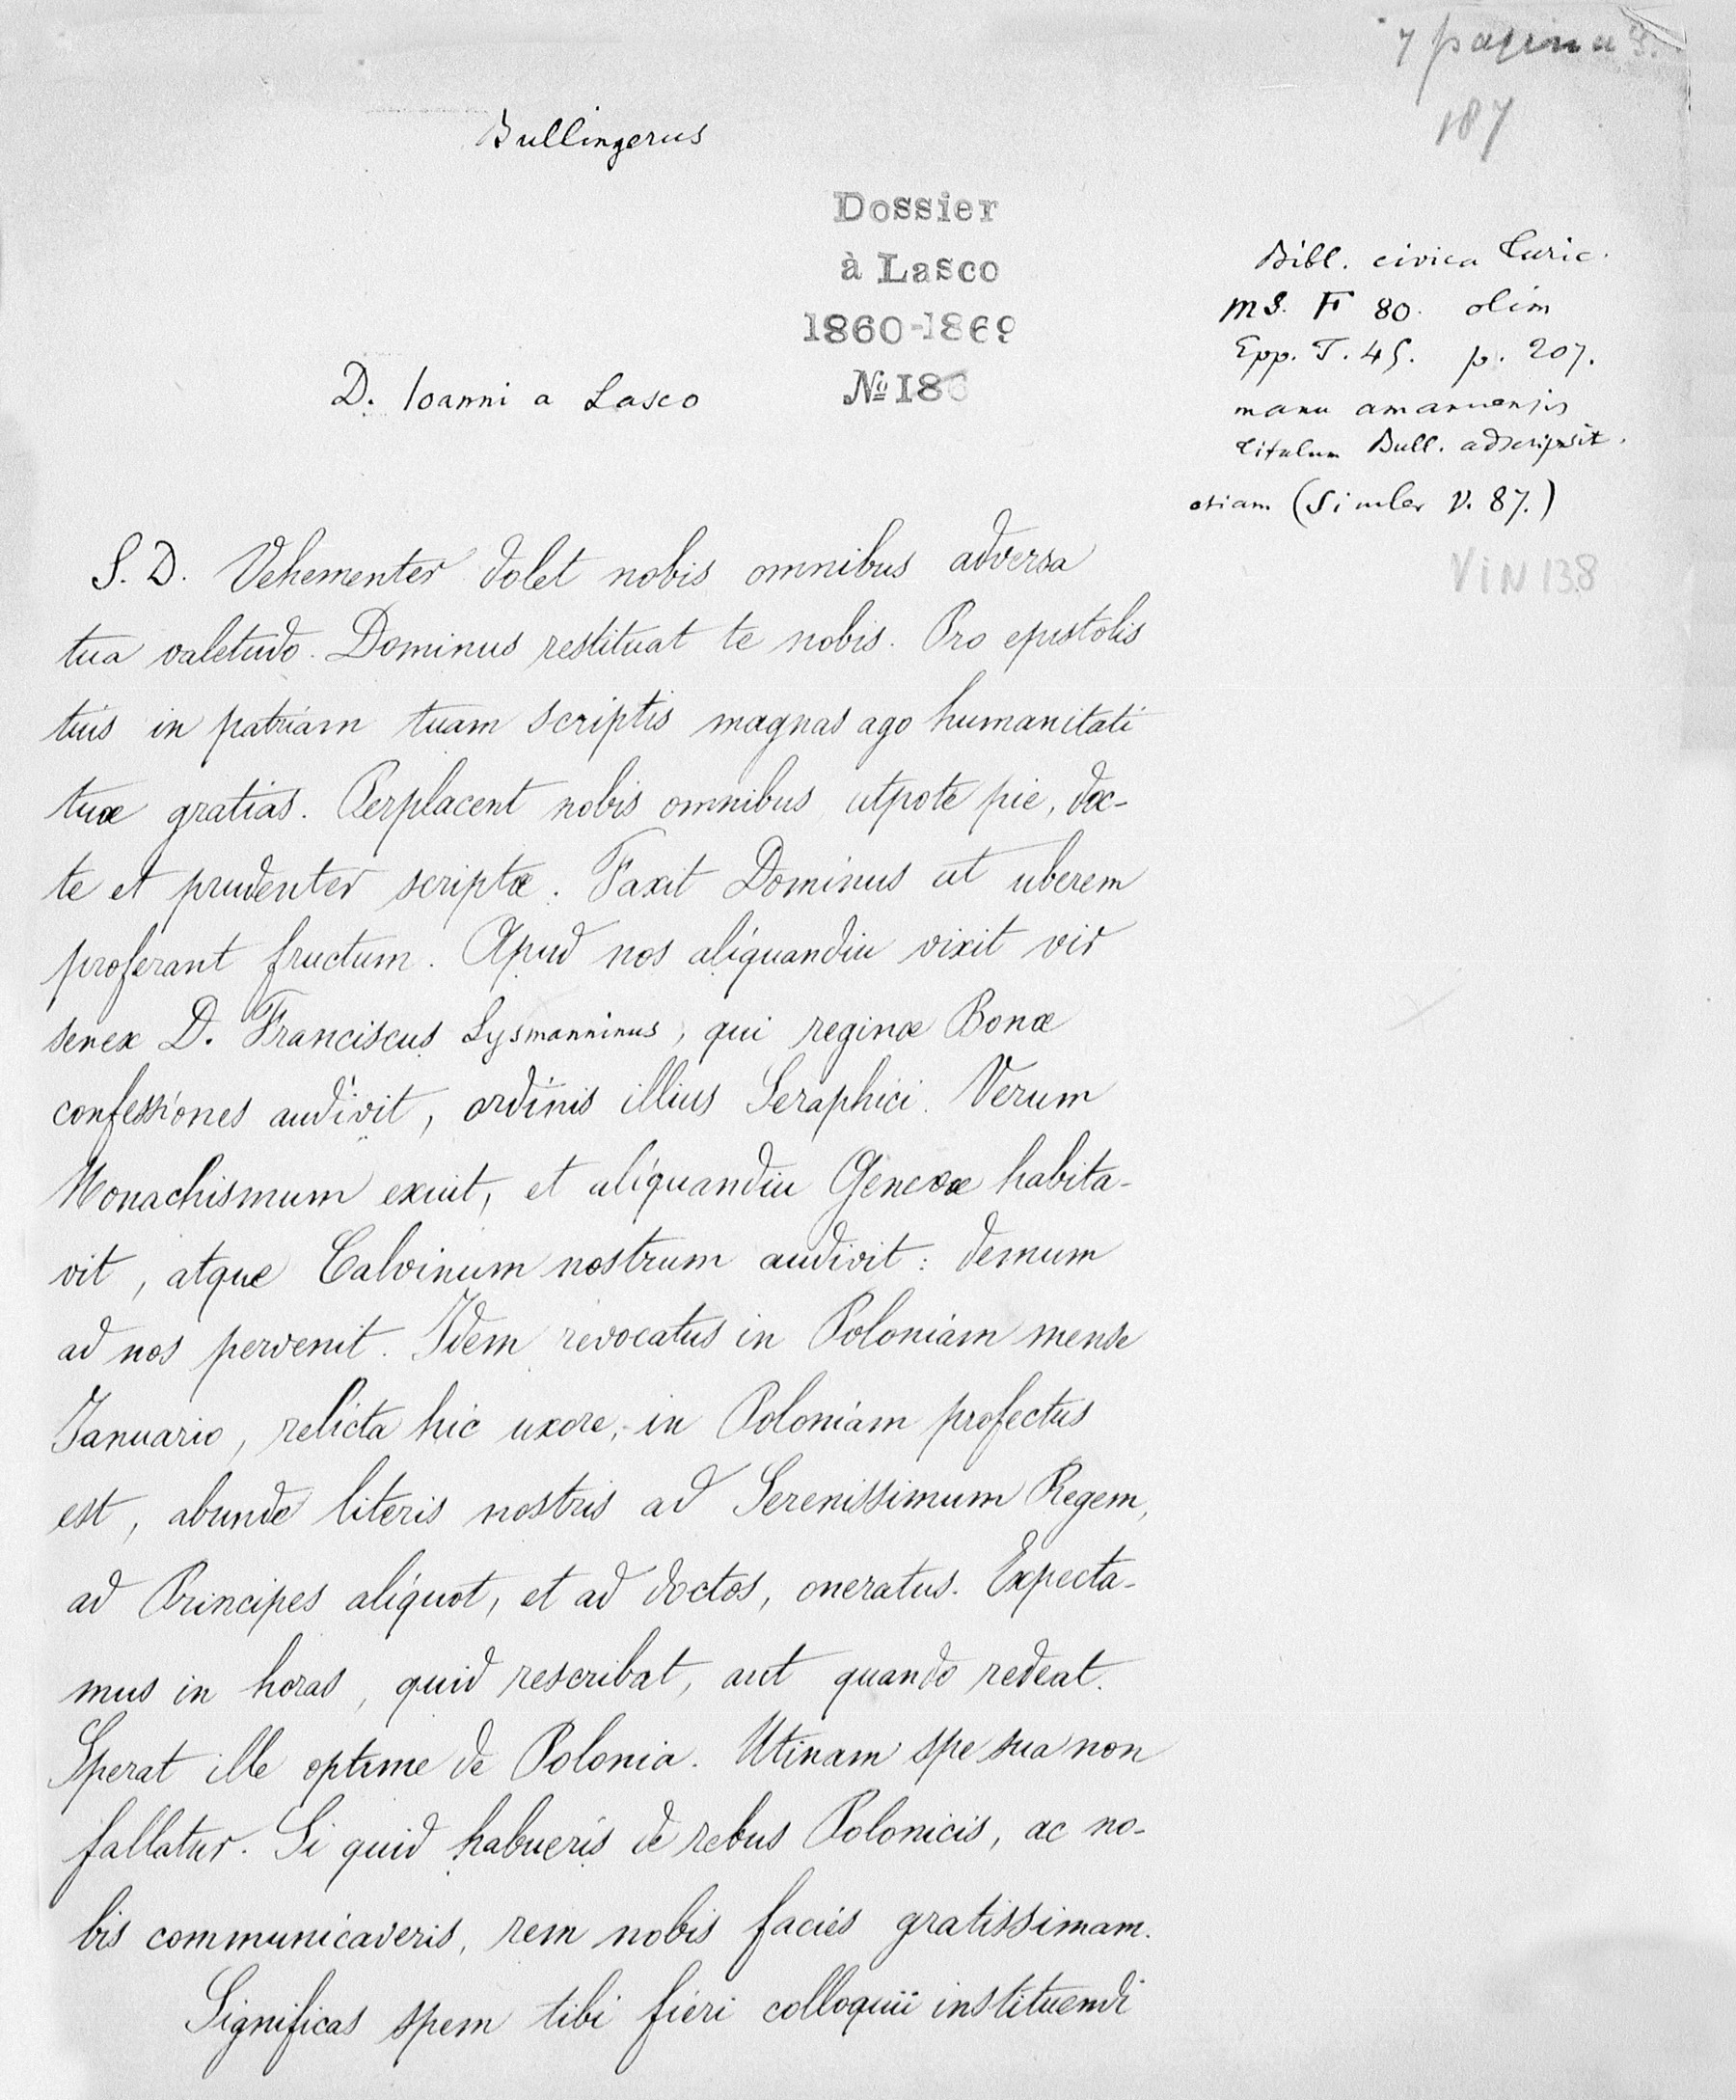 7 pagina's.
187
Bullingerus
Dossier
à Lasco
1860-1869
№ 18
D. Ioanni a Lasco
Bibl. civica Turic.
MS. F 80. olim
Epp. T. 45. p. 207.
manu amanuensis
titulum Bull. adscripsit.
etiam (Simler V. 87.)
VIN 138
S. D. Vehementer dolet nobis omnibus adversa
tua valetudo. Dominus restituat te nobis. Pro epistolis
tuis in patriam tuam scriptis magnas ago humanitati
tuæ gratias. Perplacent nobis omnibus utpote pie, doc-
te et prudenter scriptæ. Faxit Dominus ut uberem
proferant fructum. Apud nos aliquandiu vixit vir
senex D. Franciscus Lysmanninus, qui reginæ Bonæ
confessiones audivit, ordinis illius Seraphici. Verum
Monachismum exuit, et aliquandiu Genevæ habita-
vit, atque Calvinum nostrum audivit: demum
ad nos pervenit. Idem revocatus in Poloniam mense
Januario, relicta hic uxore, in Poloniam profectus
est, abunde literis nostris ad Serenissimum Regem,
ad Principes aliquot, et ad doctos, oneratus. Expecta-
mus in horas, quid rescribat, aut quando redeat.
Sperat ille optime de Polonia. Utinam spe sua non
fallatur. Si quid habueris de rebus Polonicis, ac no-
bis communicaveris, rem nobis facies gratissimam.
Significas spem tibi fieri colloquii instituendi